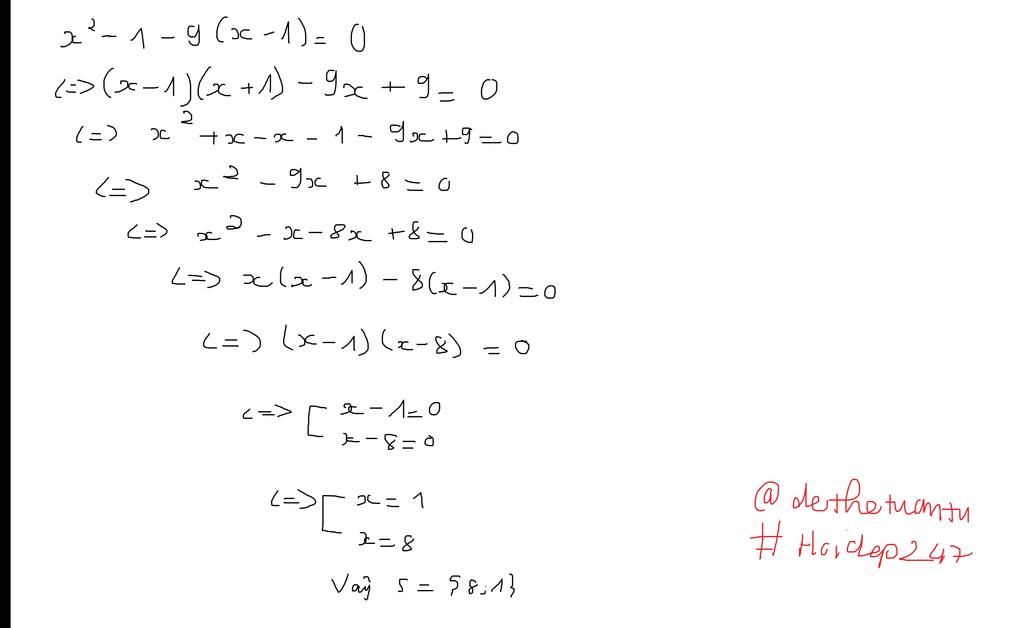 x² - 1 - 9(x - 1) = 0
<=> (x - 1)(x + 1) - 9x + 9 = 0
<=> x² + x - x - 1 - 9x + 9 = 0
<=> x² - 9x + 8 = 0
<=> x² - x - 8x + 8 = 0
<=> x(x - 1) - 8(x - 1) = 0
<=> (x - 1)(x - 8) = 0
<=> [ x - 1 = 0
x - 8 = 0
<=> [ x = 1
x = 8
Vaỹ S = {8;1}
# Haidep247